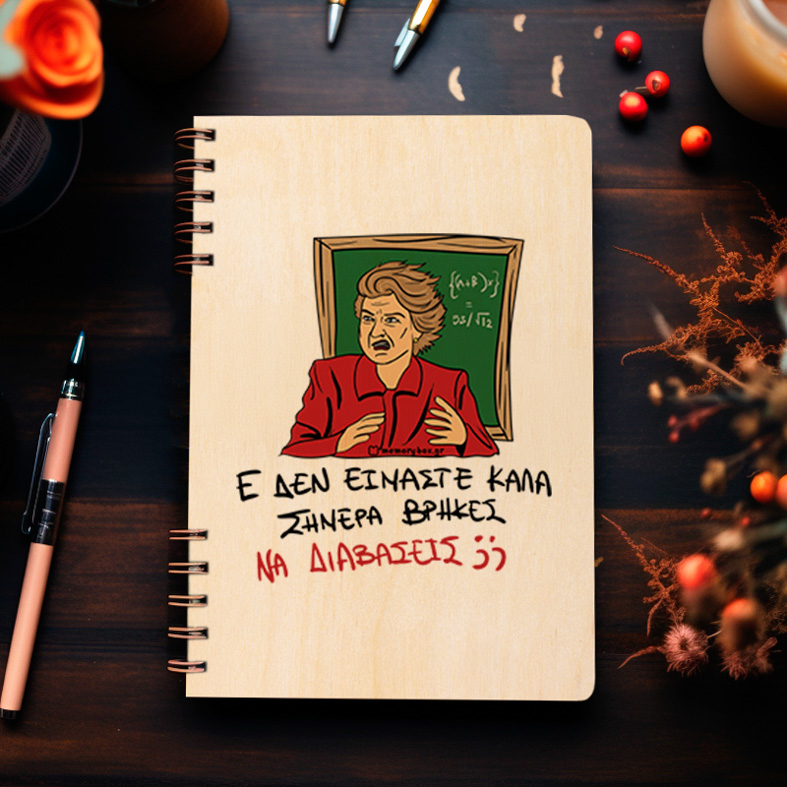 {(A+B)x}
=
95/√12
memorybox.gr
Ε ΔΕΝ ΕΙΜΑΣΤΕ ΚΑΛΑ
ΣΗΜΕΡΑ ΒΡΗΚΕΣ
ΝΑ ΔΙΑΒΑΣΕΙΣ ;;